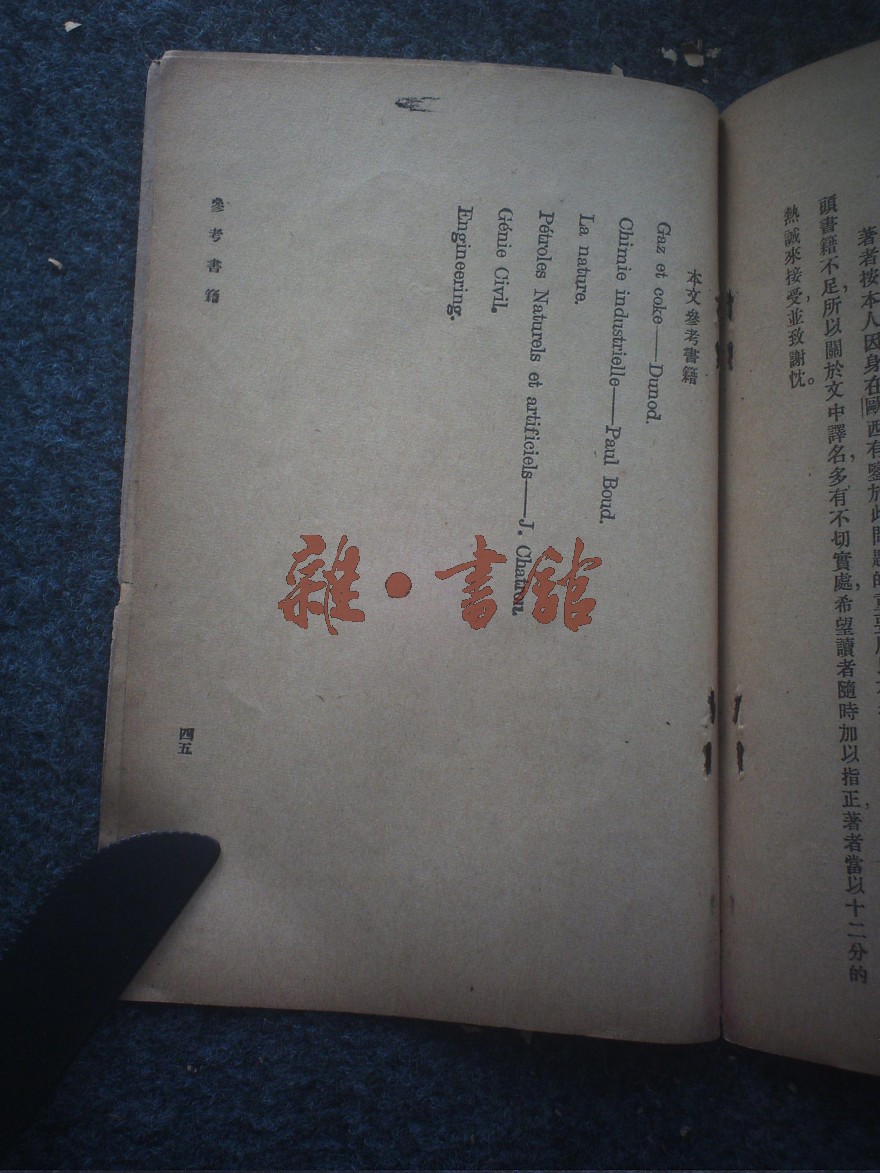 著者按本人因身在歐西有鑒於此問題的重要
頭書籍不足,所以關於文中譯名,多有不切實處,希望讀者隨時加以指正,著者當以十二分的
熱誠來接受,並致謝忱。
本文參考書籍
Gaz et coke——Dunod.
Chimie industrielle——Paul Boud.
La nature.
Pétroles Naturels et artificiels——J. Chatron.
Génie Civil.
Engineering.
參考書籍
四五
雜·書舘